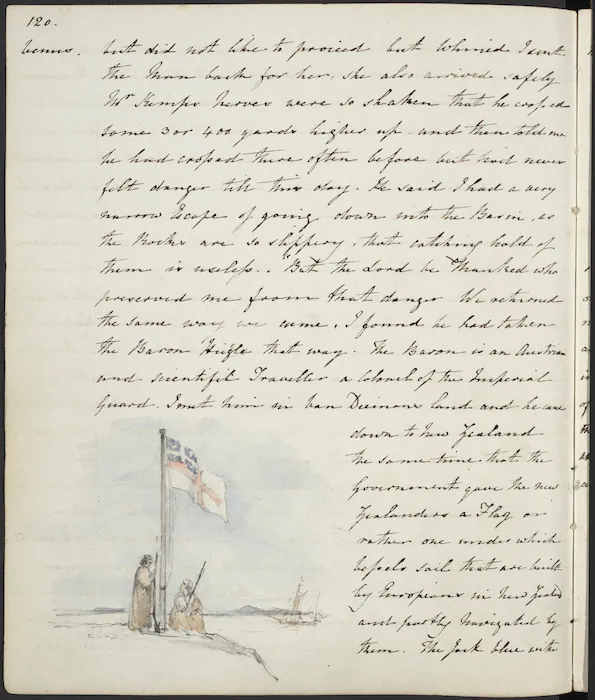 120.
Venus. but did not like to proceed but whined I sent
the Man back for her, she also arrived safely
Mr Kemps Nerves were so shaken that he crossed
some 3 or 400 yards higher up. and then told me
he had crossed there often before but had never
felt danger till this day. He said I had a very
narrow Escape of going down into the Basin, as
the Rocks are so slippery, that catching hold of
them is useless.. But the Lord be Thanked who
preserved me from that danger We returned
the same way we came, I found he had taken
the Baron Hügle that way. The Baron is an Austrian
and scientific Traveller a Colonel of the Imperial
Guard. I met him in Van Diemans land and he came
down to New Zealand
the same time that the
Government gave the new
Zealanders a Flag or
rather one under which
Vessels sail that are built
by Europeans in New Zealand
and partly Navigated by
them. The Jack blue with